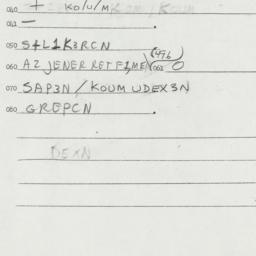 040 + KO/U/M
041 —
050 S+L1K3RCN
060 A2 JENER RET F1,ME)
(496
061 O
070 SAP3N / KOUM UDEX3N
080 GREPCN
DEXN